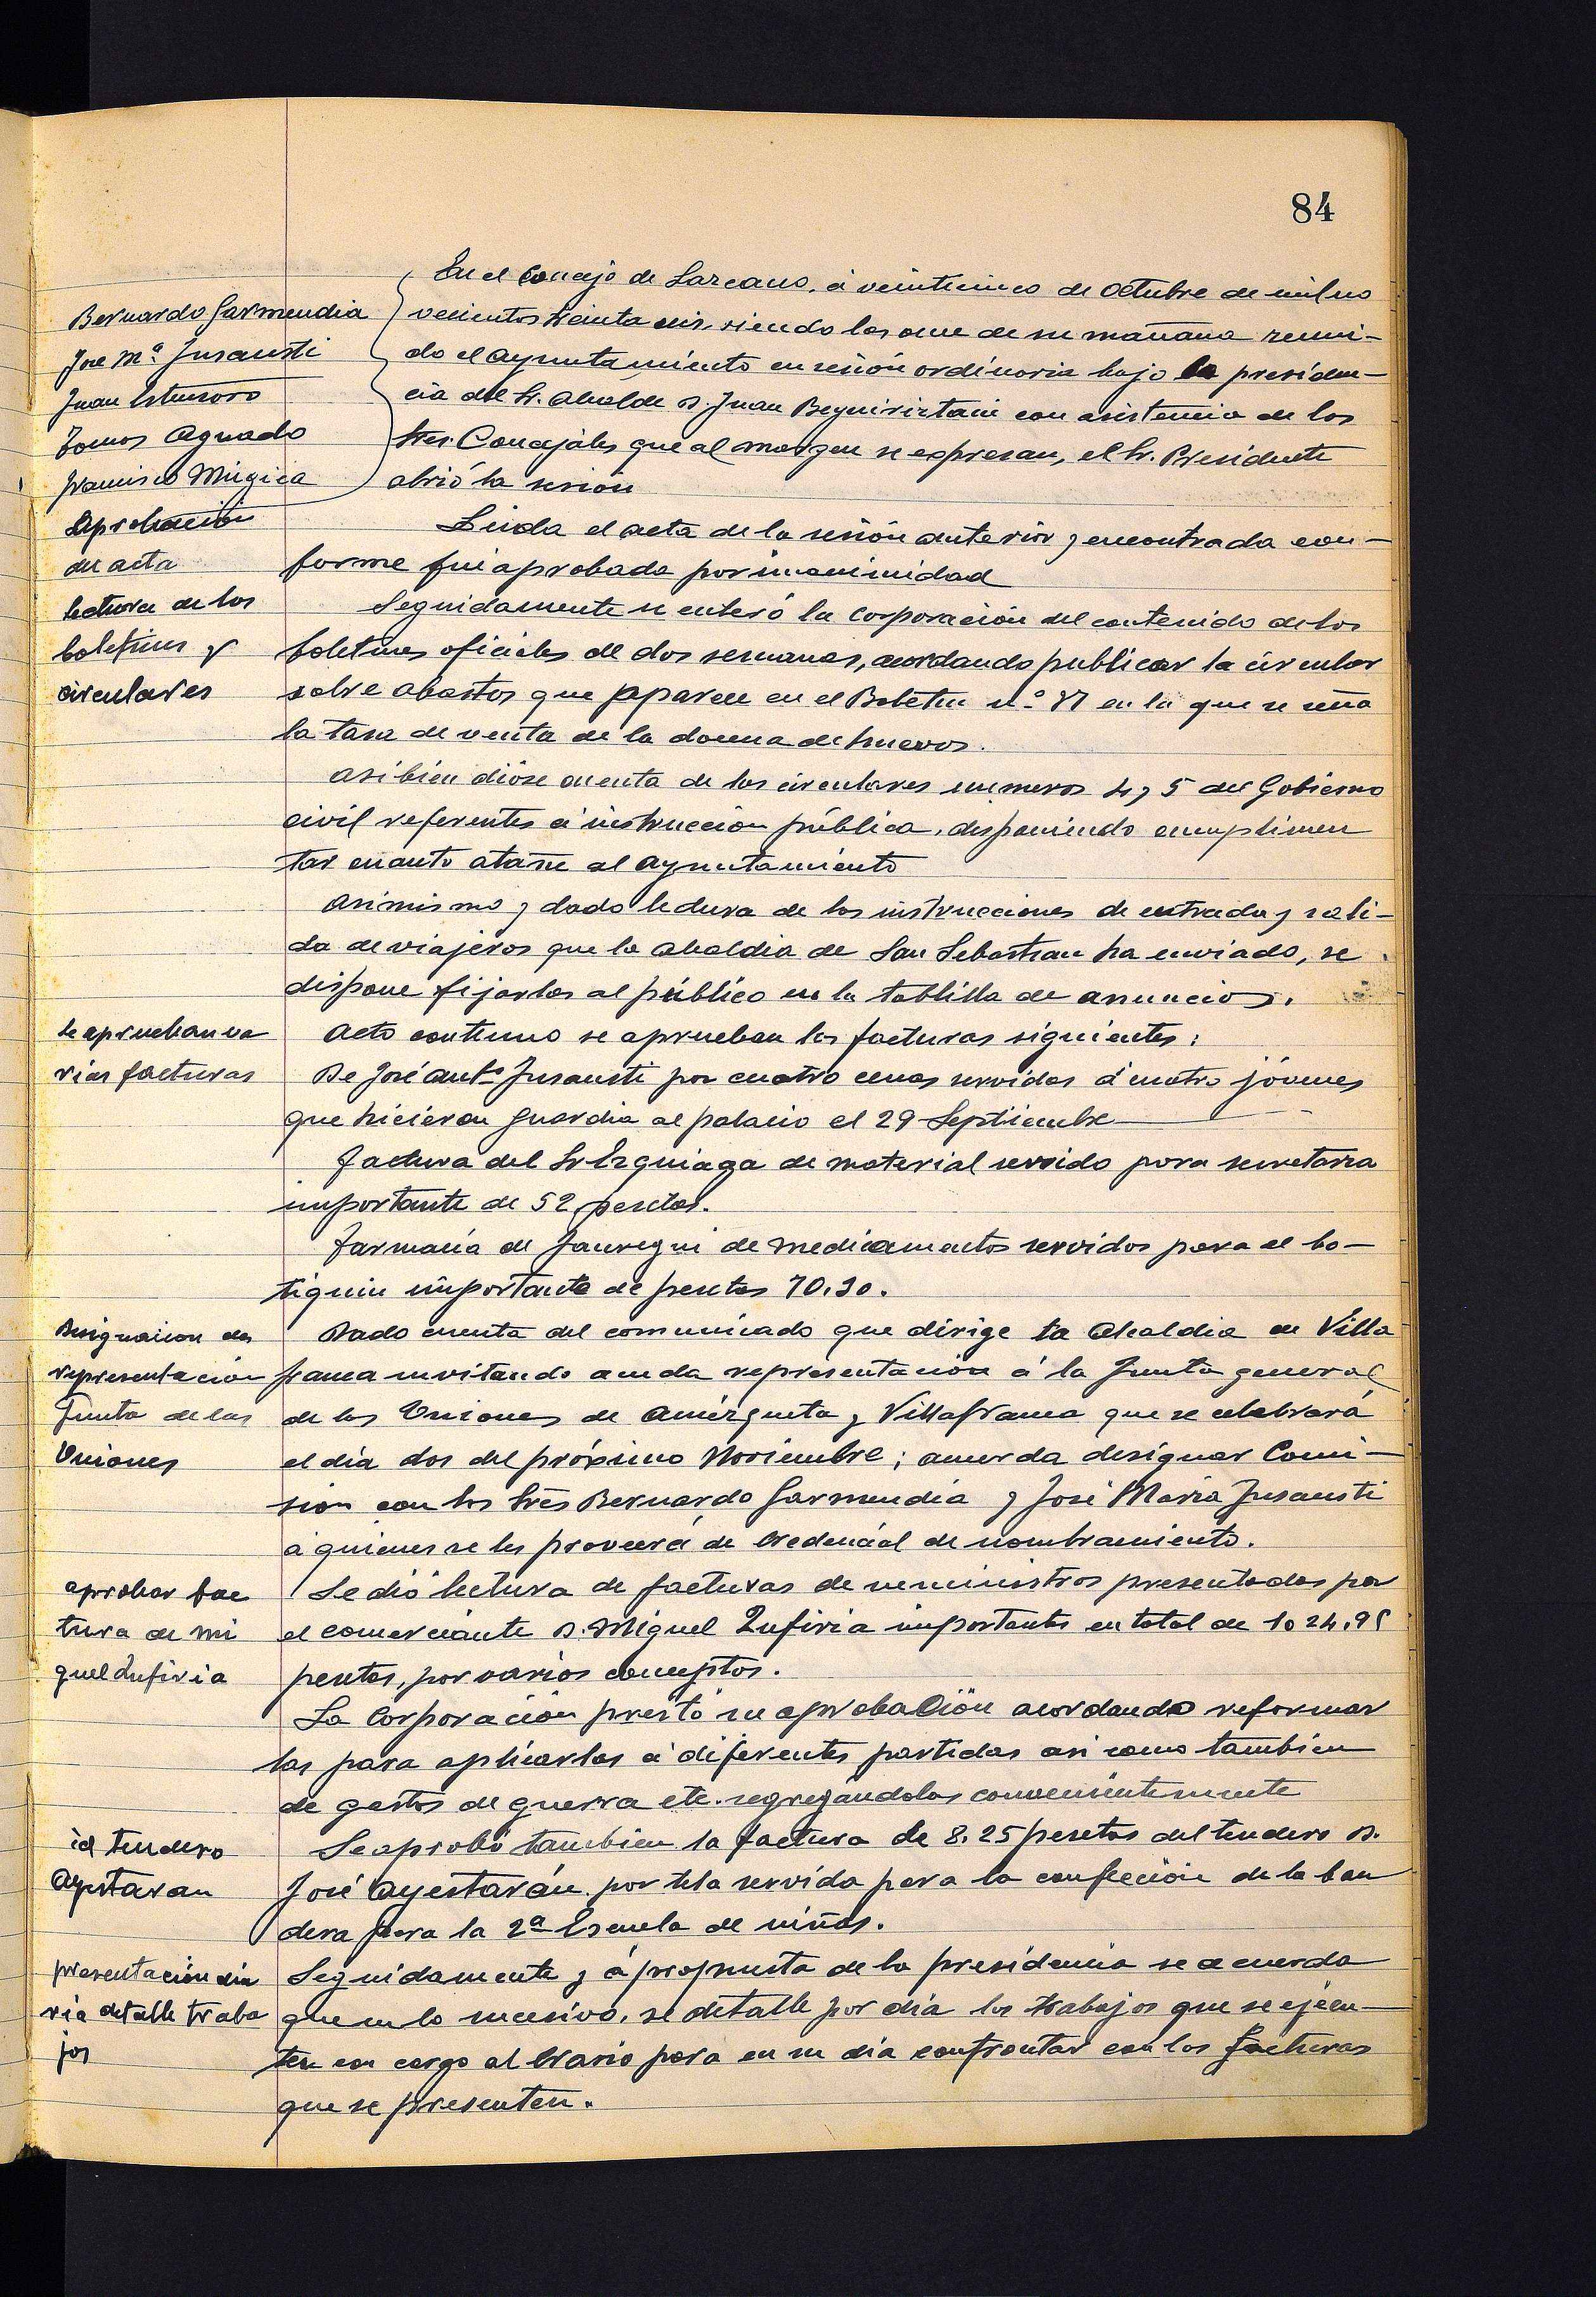 84
Bernardo Garmendia
Jose Mª Insausti
Juan Estensoro
Tomas Aguado
Francisco Múgica
En el Concejo de Lazcano, á veinticinco de Octubre de mil no
vecientos treinta seis, siendo las once de su mañana reuni-
do el Ayuntamiento en sesión ordinaria bajo la presiden-
cia del Sr. Alcalde D. Juan Beguiristain con asistencia de los
Sres. Concejales que al margen se expresan, el Sr. Presidente
abrió la sesión
Aprobación
del acta
Leida el acta de la sesión anterior y encontrada con-
forme fui aprobada por unanimidad
lectura de los
boletines y
circulares
Seguidamente se enteró la Corporación del contenido de los
boletines oficiales de dos semanas, acordando publicar la circular
sobre abastos que aparece en el Boletin n.º 87 en la que se seña
la tasa de venta de la docena de huevos.
Asi bien dióse cuenta de las circulares números 4 y 5 del Gobierno
civil referentes á instrucción pública, disponiendo cumplimen
tar cuanto atañe al Ayuntamiento
Asimismo y dado lectura de las instrucciones de entrada y sali-
da de viajeros que la Alcaldia de San Sebastian ha enviado, se
dispone fijarlas al público en la tablilla de anuncios.
Se aprueban va
rias facturas
Acto continuo se aprueban las facturas siguientes:
De José Antº Insausti por cuatro cenas servidas á cuatro jóvenes
que hicieron guardia al palacio el 29 Septiembre
Factura del Sr Ezquiaga de material servido para secretaria
importante de 52 pesetas.
Farmacia de Jauregui de medicamentos servidos para el bo-
tiquin importante de pesetas 70.30.
Designacion de
representación
Junta de las
Uniones
Dado cuenta del comunicado que dirige la Alcaldia de Villa
franca invitando acuda representación á la Junta general
de las Uniones de Amézqueta y Villafranca que se celebrará
el dia dos del próximo Noviembre; acuerda designar Comi-
sion con los Sres Bernardo Garmendia y José Maria Insausti
á quienes se les proveerá de credencial de nombramiento.
aprobar fac
tura de Mi
guel Zufiria
Se dió lectura de facturas de suministros presentadas por
el comerciante D. Miguel Zufiria importante en total de 1024.95
pesetas, por varios conceptos.
La Corporación prestó su aprobación acordando reformar
las para aplicarlas á diferentes partidas asi como tambien
de gastos de guerra etc. segregándolas convenientemente
id tendero
Ayestaran
Se aprobó tambien la factura de 8.25 pesetas del tendero D.
José Ayestarán por tela servida para la confección de la ban
dera para la 2ª Escuela de niños.
presentación dia
ria detalle traba
jos
Seguidamente y á propuesta de la presidencia se acuerda
que en lo sucesivo, se detalle por dia los trabajos que se ejecu-
ten con cargo al Erario para en su dia confrontar con las facturas
que se presenten.